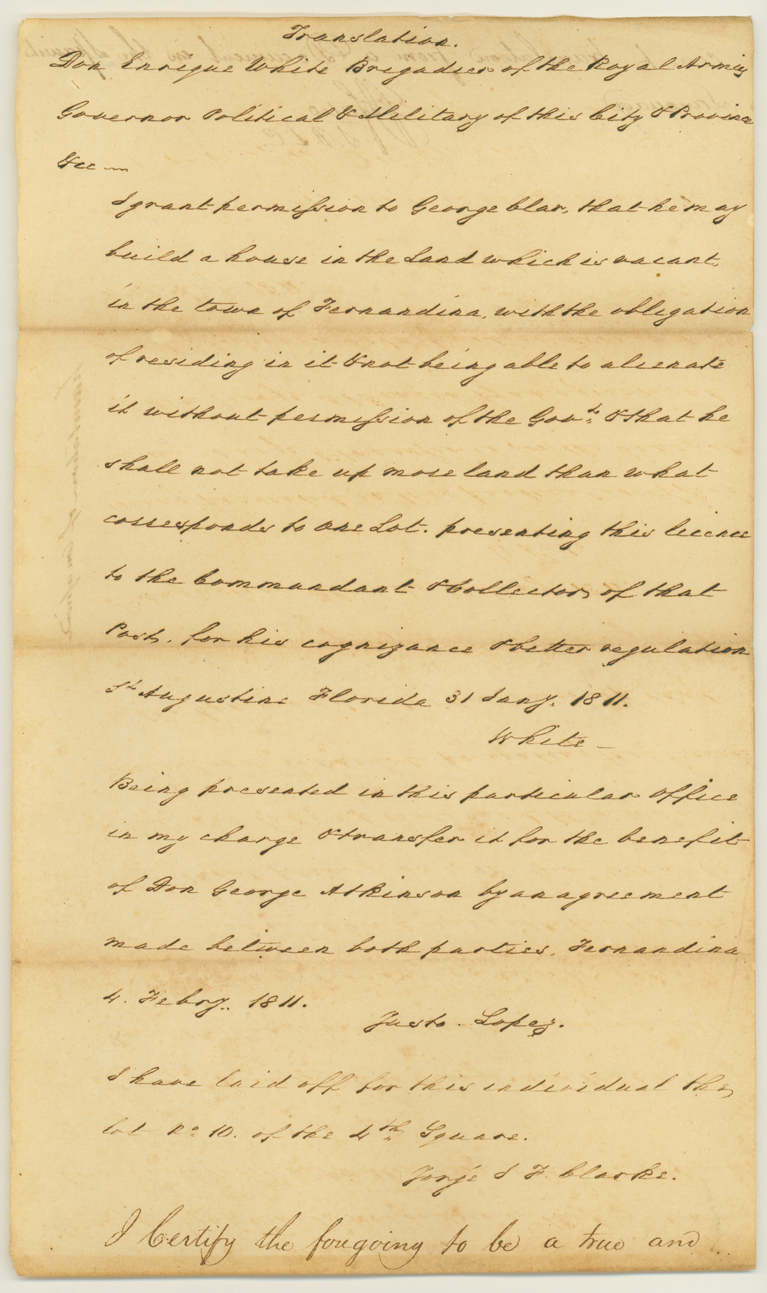 Translation.
Don Enrique White Brigadier of the Royal Armies
Governor Political & Military of this City & Province
&cc
I grant permission to George Clar, that he may
build a house in the Land which is vacant
in the town of Fernandina, with the obligation
of residing in it & not being able to alienate
it without permission of the Govt. & that he
shall not take up more land than what
corresponds to one Lot. presenting this licence
to the Commandant & Collector of that
Post. for his cognizance & better regulation
St Augustine Florida 31 Jany. 1811.
White
Being presented in this particular office
in my charge & transfer it for the benefit
of Don George Atkinson by an agreement
made between both parties. Fernandina
4. Febry. 1811.
Justo. Lopez.
I have laid off for this individual the
lot No 10. of the 4th Square.
Jorje J F. Clarke.
I Certify the foregoing to be a true and